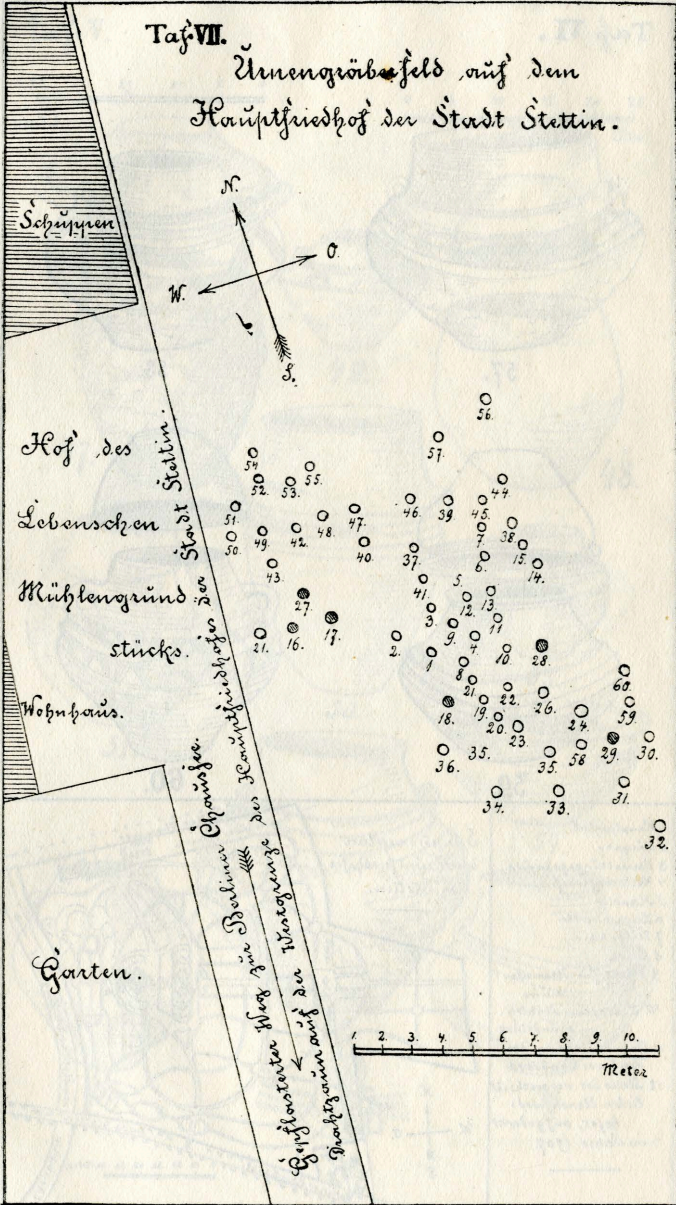 Taf. VII.
Urnengräberfeld auf dem
Hauptfriedhof der Stadt Stettin.
Schuppen
N.
O.
W.
S.
Hof des
Lebenschen
Mühlengrund
stücks.
Wohnhaus.
Garten.
Gepflasterter Weg zur Berliner Chaussee.
Drahtzaun auf der Westgrenze des Hauptfriedhofes der Stadt Stettin.
56.
57.
54
55.
52.
53.
44.
51.
48.
47.
46.
39.
45.
38.
50.
49.
42.
40.
7.
15.
43.
37.
6.
14.
41.
5.
12.
13.
27.
3.
11
21.
16.
17.
2.
9.
4.
28.
1
10.
8
60.
21.
22.
26.
18.
19.
20.
24.
59.
23.
29.
30.
36.
35.
35.
58
34.
33.
31.
32.
1. 2. 3. 4. 5. 6. 7. 8. 9. 10.
Meter